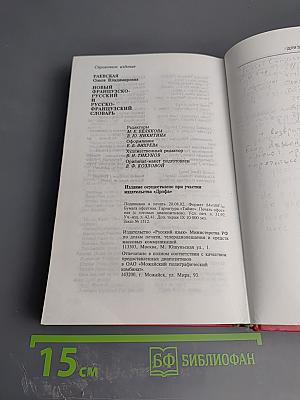 Справочное издание
РАЕВСКАЯ
Ольга Владимировна
НОВЫЙ
ФРАНЦУЗСКО-
РУССКИЙ
И
РУССКО-
ФРАНЦУЗСКИЙ
СЛОВАРЬ
Редакторы
М. К. БЕЛЯКОВА
В. Ю. НИКИТИНА
Оформление
Е. В. ВИХРЕВА
Художественный редактор
В. И. ТИКУНОВ
Оригинал-макет подготовлен
В. Ф. КОЗЛОВОЙ
Издание осуществлено при участии
издательства «Дрофа»
Подписано в печать 20.08.02. Формат
Бумага офсетная. Гарнитура «Таймс». Печать офсет-
ная (с готовых диапозитивов). Усл. печ. л.
Тираж 10 000 экз.
Заказ № 1712.
Издательство «Русский язык» Министерства РФ
по делам печати, телерадиовещания и средств
массовых коммуникаций.
113303, Москва, М. Юшуньская ул., 1.
Отпечатано в полном соответствии с качеством
предоставленных диапозитивов
в ОАО «Можайский полиграфический
комбинат»
143200, г. Можайск, ул. Мира, 93.
15 см
БФ БИБЛИОФАН